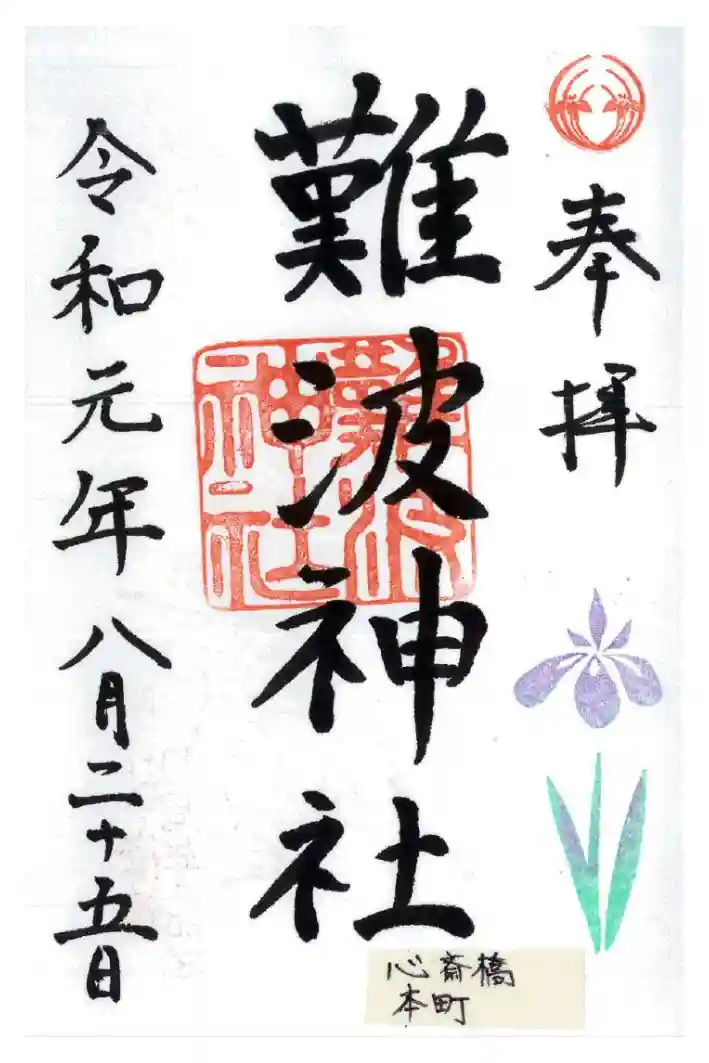 奉拝
難波神社
難波
神社
令和元年八月二十五日
心斎橋
本町